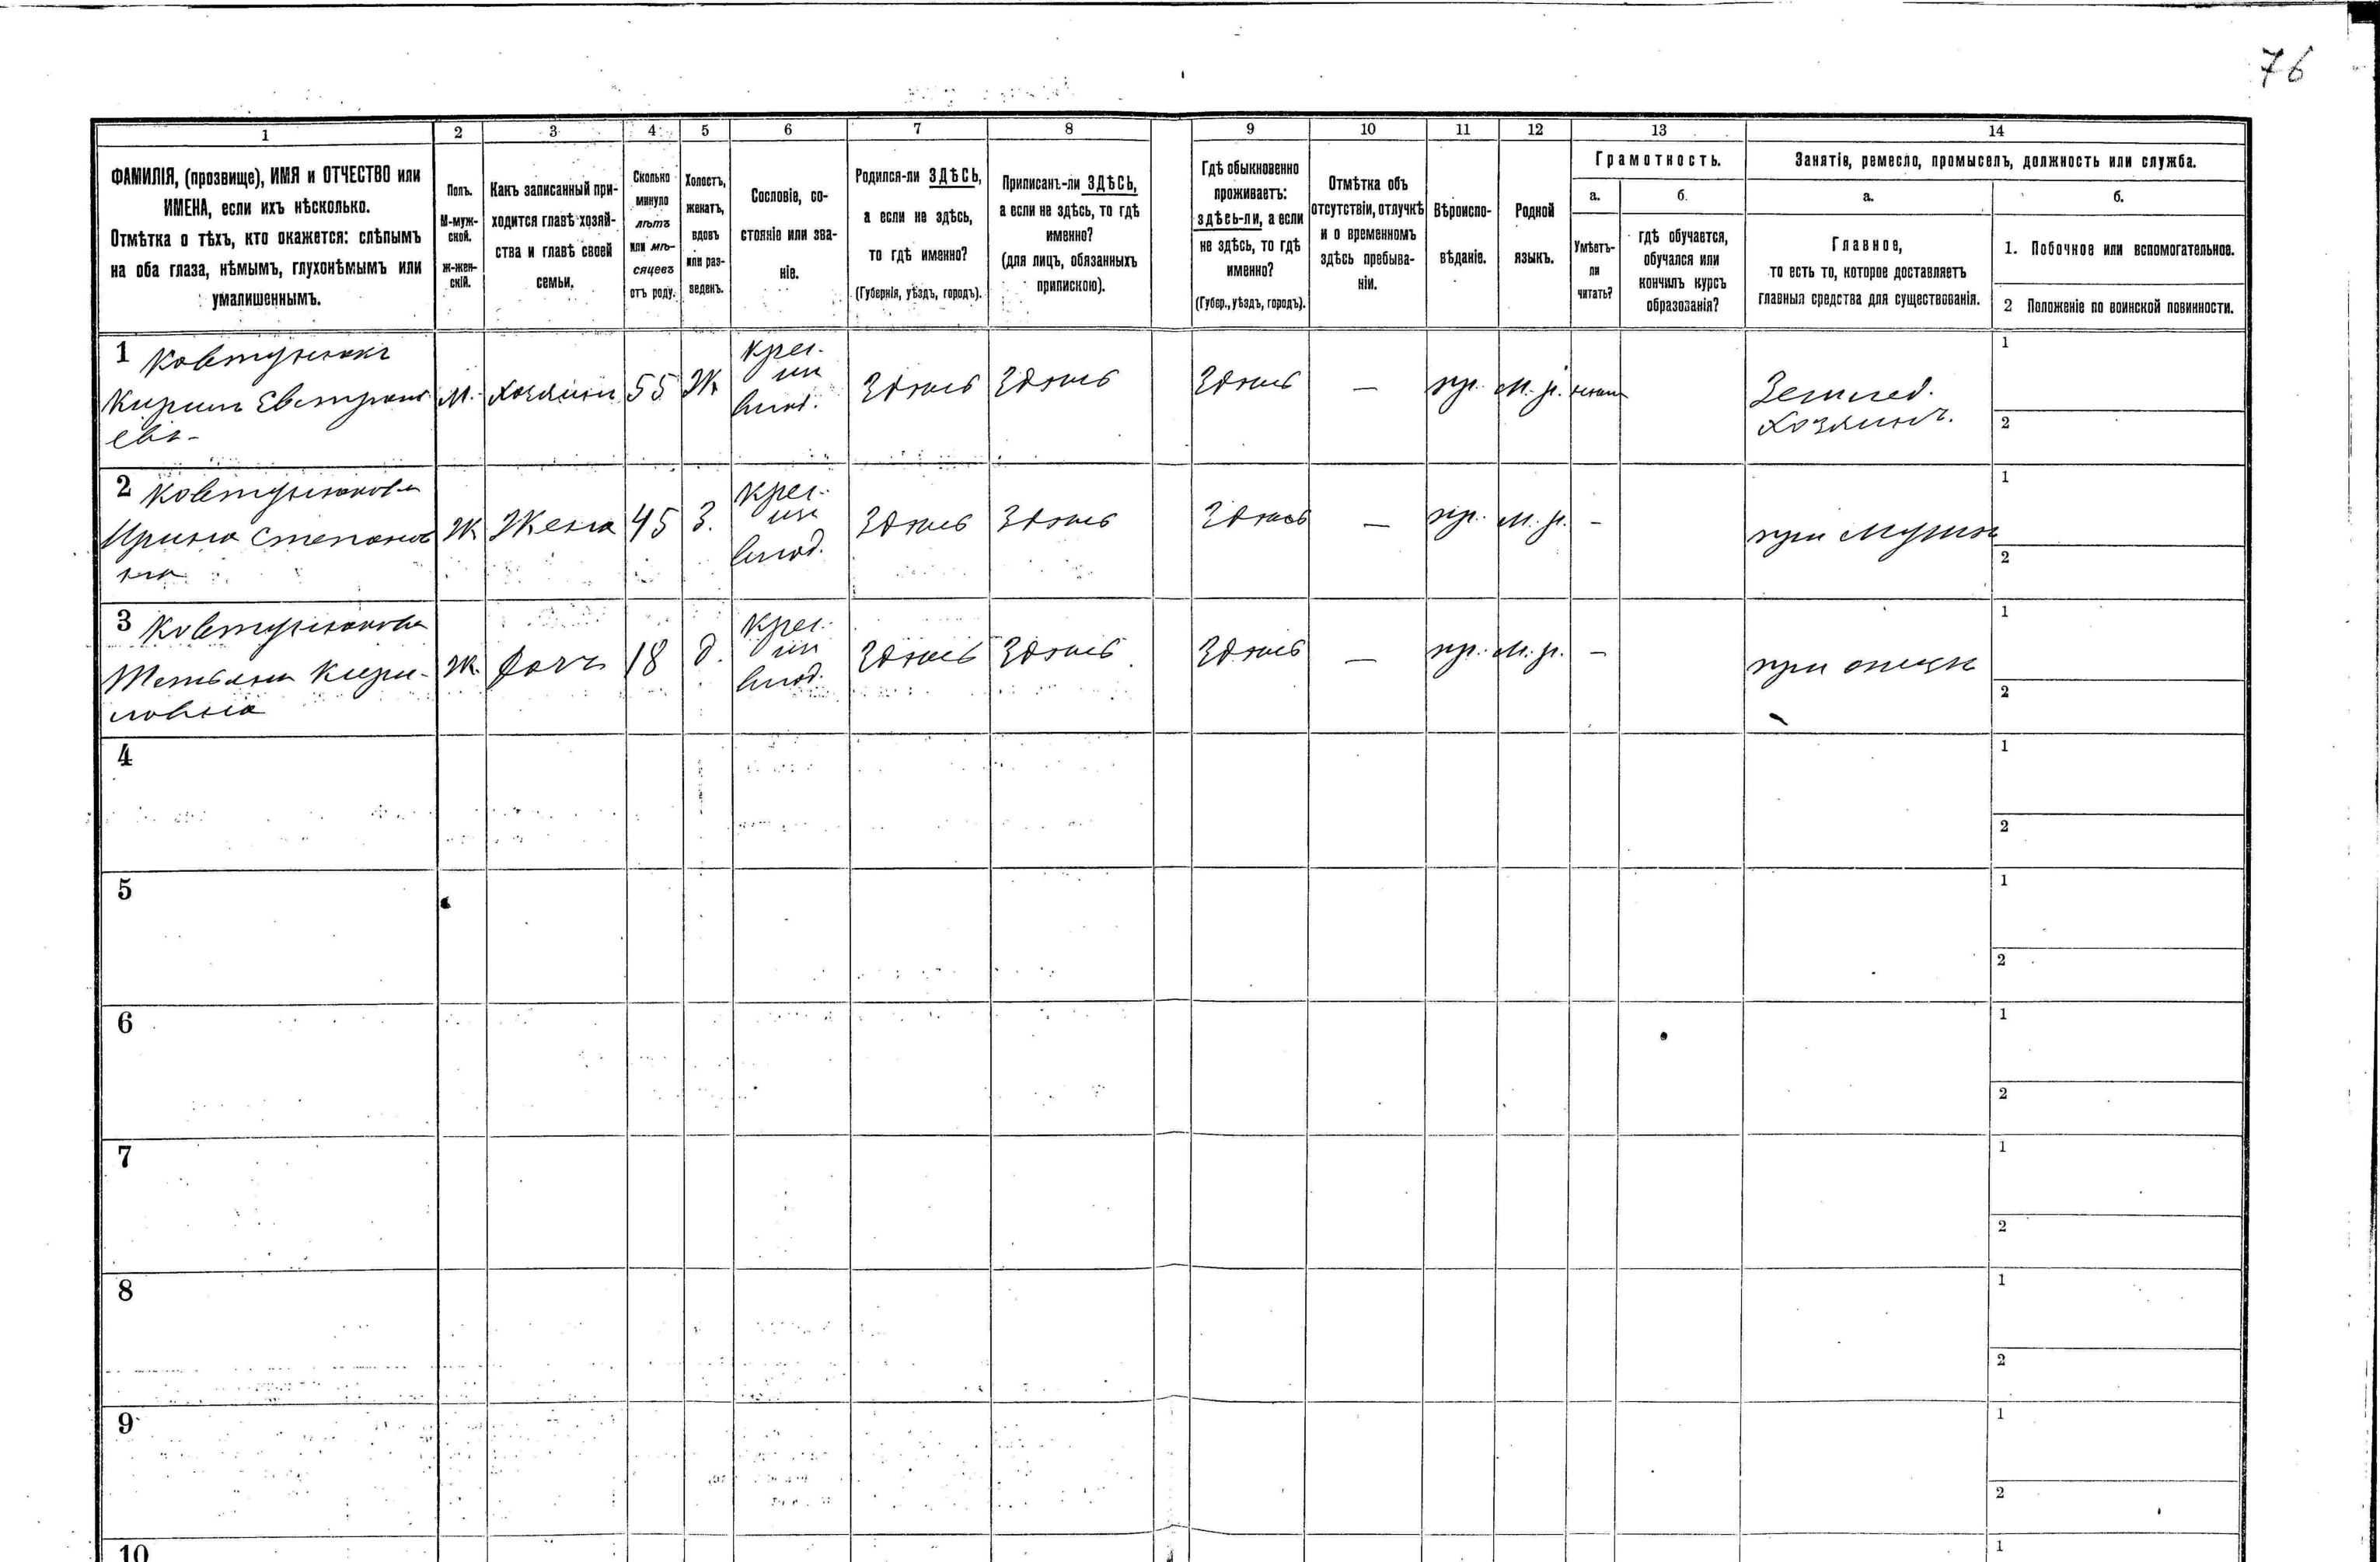 76
1 2 3 4 5 6 7 8 9 10 11 12 13 14
ФАМИЛІЯ, (прозвище), ИМЯ и ОТЧЕСТВО или
ИМЕНА, если ихъ нѣсколько.
Отмѣтка о тѣхъ, кто окажется: слѣпымъ
на оба глаза, нѣмымъ, глухонѣмымъ или
умалишеннымъ.
Полъ.
М-муж-
ской.
ж-жен-
скій.
Какъ записанный при-
ходится главѣ хозяй-
ства и главѣ своей
семьи.
Сколько
минуло
лѣтъ
или мѣ-
сяцевъ
отъ роду.
Холостъ,
женатъ,
вдовъ
или раз-
веденъ.
Сословіе, со-
стояніе или зва-
ніе.
Родился-ли ЗДѢСЬ,
а если не здѣсь,
то гдѣ именно?
(Губернія, уѣздъ, городъ).
Приписанъ-ли ЗДѢСЬ,
а если не здѣсь, то гдѣ
именно?
(для лицъ, обязанныхъ
припискою).
Гдѣ обыкновенно
проживаетъ:
здѣсь-ли, а если
не здѣсь, то гдѣ
именно?
(Губер., уѣздъ, городъ).
Отмѣтка объ
отсутствіи, отлучкѣ
и о временномъ
здѣсь пребыва-
ніи.
Вѣроиспо-
вѣданіе.
Родной
языкъ.
Грамотность.
а.
Умѣетъ-
ли
читать?
б.
гдѣ обучается,
обучался или
кончилъ курсъ
образованія?
Занятіе, ремесло, промыселъ, должность или служба.
а.
Главное,
то есть то, которое доставляетъ
главныя средства для существованія.
б.
1. Побочное или вспомогательное.
2 Положеніе по воинской повинности.
1 Ковтунянкъ
Кирилъ
евъ-
М. хозяинъ 55 Ж
Крес.
ин
влад.
Здѣсь Здѣсь Здѣсь — пр. м.р.
Землед.
Хозяинъ.
1
2
2
Ирина Степанов
на
Ж Жена 45 З.
Крес.
изъ
влад.
Здѣсь Здѣсь Здѣсь — пр. м.р. -
при мужѣ
1
2
3
Татьяна Кири-
ловна
Ж. дочь 18 д.
Крес.
ин
влад.
Здѣсь Здѣсь Здѣсь — пр. м.р. —
при отцѣ
1
2
4
1
2
5
1
2
6
1
2
7
1
2
8
1
2
9
1
2
10
1